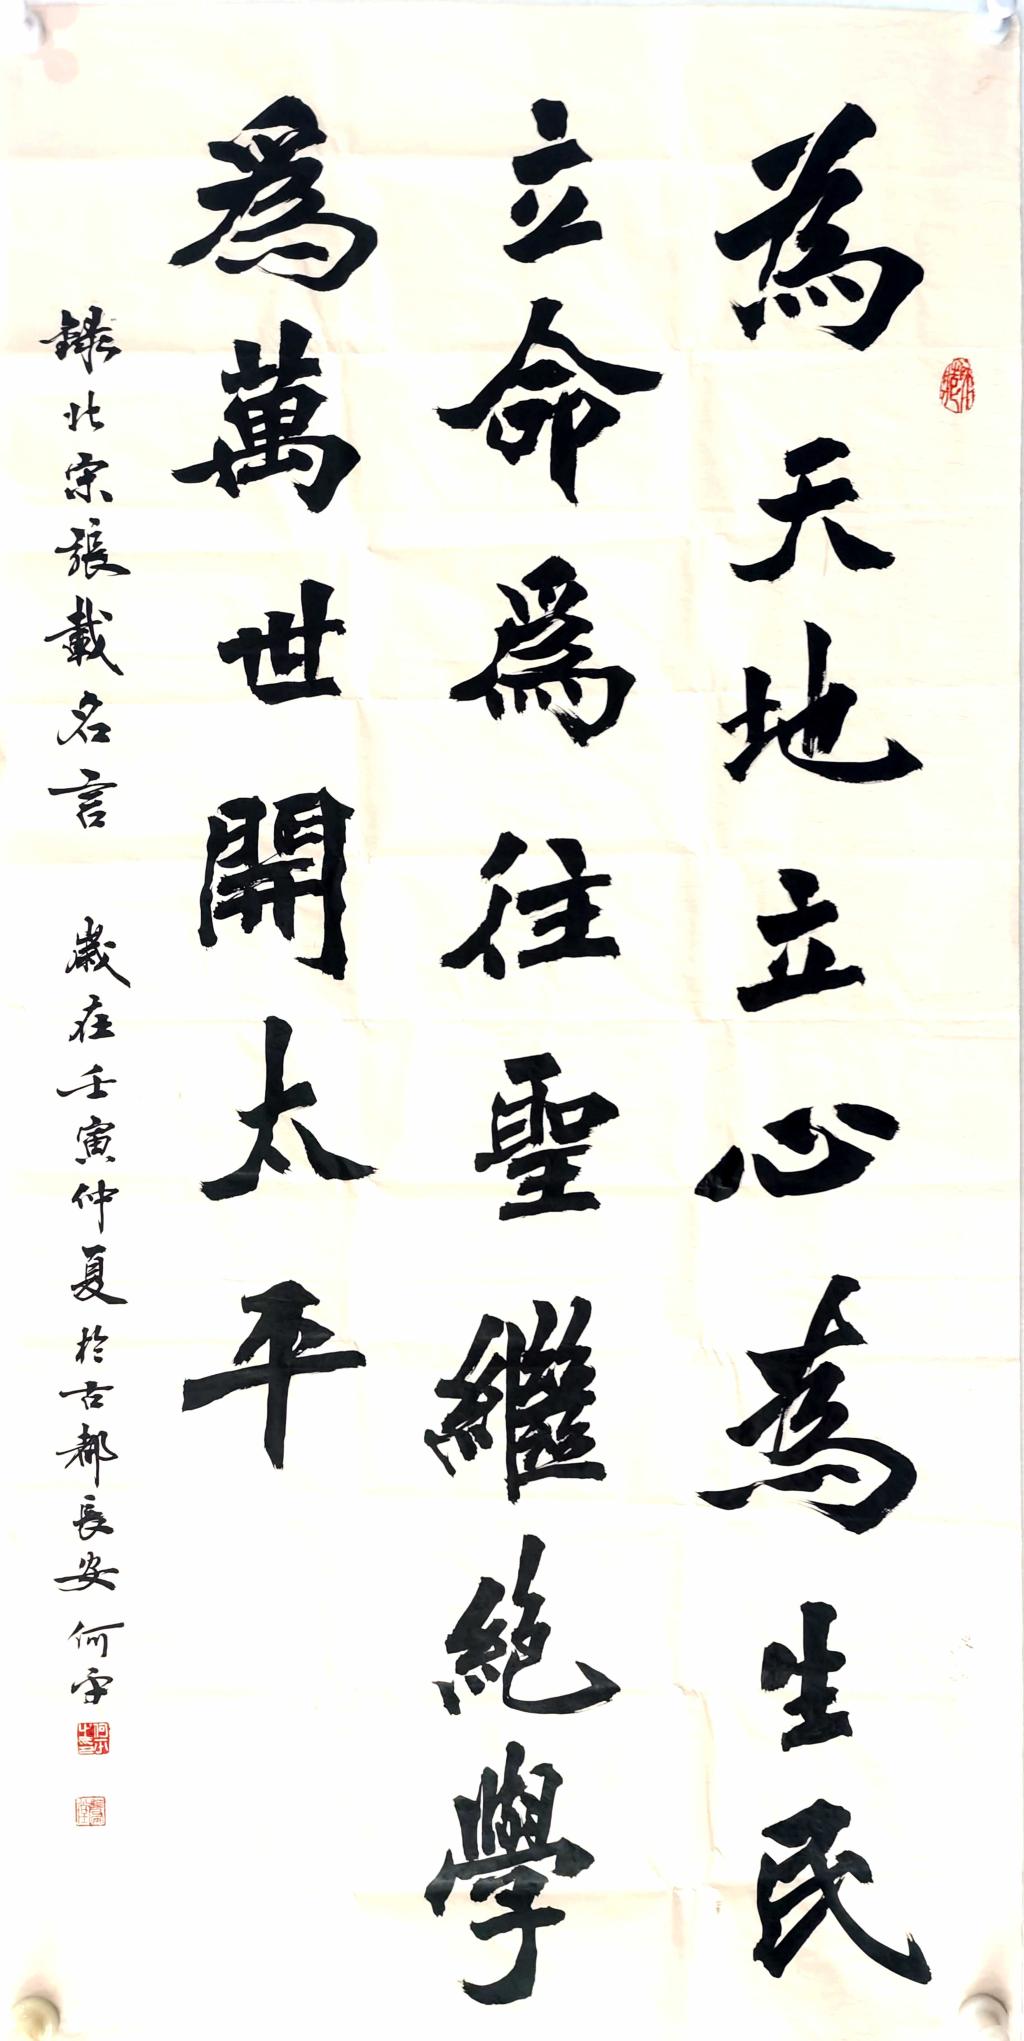 為天地立心為生民
立命爲往聖繼絕學
爲萬世開太平
錄北宋張載名言 歲在壬寅仲夏於古都長安何平